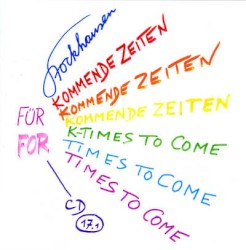 Stockhausen
KOMMENDE ZEITEN
KOMMENDE ZEITEN
KOMMENDE ZEITEN
K-TIMES TO COME
TIMES TO COME
TIMES TO COME
FÜR
FOR
CD
17.1